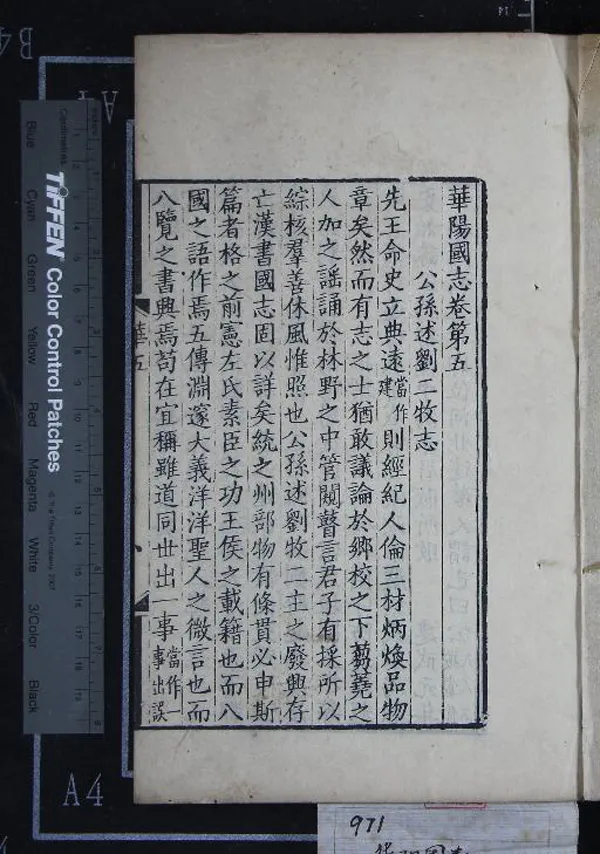 華陽國志卷第五
公孫述劉二牧志
先王命史立典遠當作建則經紀人倫三材炳煥品物
章矣然而有志之士猶敢議論於鄉校之下芻蕘之
人加之謡誦於林野之中管闚瞽言君子有採所以
綜核羣善休風惟照也公孫述劉牧二主之廢興存
亡漢書國志固以詳矣統之州部物有條貫必申斯
篇者格之前憲左氏素臣之功王侯之載籍也而八
國之語作焉五傳淵邃大義洋洋聖人之微言也而
八覽之書興焉苟在宜稱雖道同世出一事當作一事出誤
華五
TIFFEN Color Control Patches
© The Tiffen Company, 2007
Centimetres
Blue
Cyan
Green
Yellow
Red
Magenta
White
3/Color
Black
B4
A4
A4
971